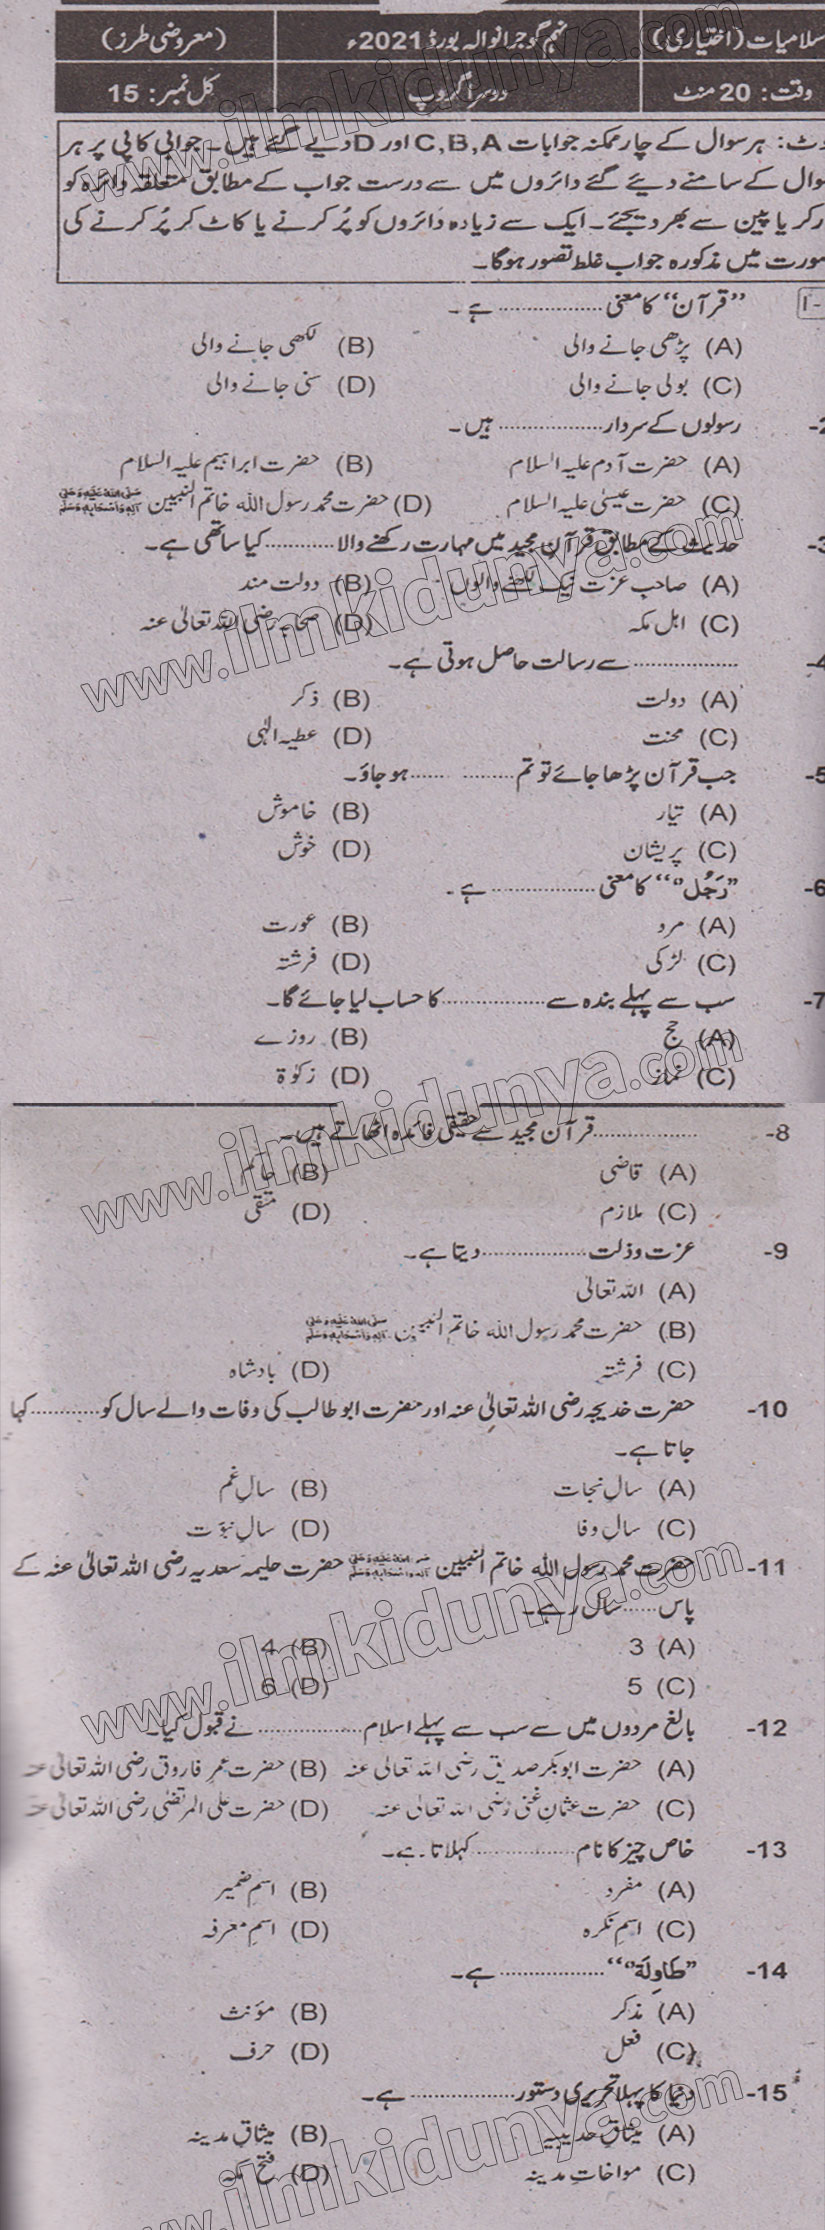 سلامیات (اختیاری) نہم گوجرانوالہ بورڈ 2021ء (معروضی طرز)
وقت: 20 منٹ دوسرا گروپ کل نمبر: 15
وٹ: ہر سوال کے چار ممکنہ جوابات C,B,A اور D دیے گئے ہیں۔ جوابی کاپی پر ہر
وال کے سامنے دیئے گئے دائروں میں سے درست جواب کے مطابق متعلقہ دائرہ کو
رکر یا پین سے بھر دیجئے۔ ایک سے زیادہ دائروں کو پُر کرنے یا کاٹ کر پُر کرنے کی
صورت میں مذکورہ جواب غلط تصور ہوگا۔
1- ”قرآن“ کا معنی .................. ہے۔
(A) پڑھی جانے والی (B) لکھی جانے والی
(C) بولی جانے والی (D) سنی جانے والی
2- رسولوں کے سردار .................. ہیں۔
(A) حضرت آدم علیہ السلام (B) حضرت ابراہیم علیہ السلام
(C) حضرت عیسیٰ علیہ السلام (D) حضرت محمد رسول اللہ خاتم النبیین صَلَّی اللہُ عَلَیْہِ وَعَلٰی آلِہٖ وَاَصْحَابِہٖ وَسَلَّمَ
3- حدیث کے مطابق قرآن مجید میں مہارت رکھنے والا ............ کیا ساتھی ہے۔
(A) صاحب عزت نیک لکھنے والوں (B) دولت مند
(C) اہل مکہ (D) صحابہ رضی اللہ تعالیٰ عنہ
4- .................. سے رسالت حاصل ہوتی ہے۔
(A) دولت (B) ذکر
(C) محنت (D) عطیہ الٰہی
5- جب قرآن پڑھا جائے تو تم .................. ہو جاؤ۔
(A) تیار (B) خاموش
(C) پریشان (D) خوش
6- ”رَجُلٌ“ کا معنی .................. ہے۔
(A) مرد (B) عورت
(C) لڑکی (D) فرشتہ
7- سب سے پہلے بندہ سے .................. کا حساب لیا جائے گا۔
(A) حج (B) روزے
(C) نماز (D) زکوٰۃ
8- .................. قرآن مجید سے حقیقی فائدہ اٹھاتے ہیں۔
(A) قاضی (B) حاکم
(C) ملازم (D) متقی
9- عزت و ذلت .................. دیتا ہے۔
(A) اللہ تعالیٰ
(B) حضرت محمد رسول اللہ خاتم النبیین صَلَّی اللہُ عَلَیْہِ وَعَلٰی آلِہٖ وَاَصْحَابِہٖ وَسَلَّمَ
(C) فرشتہ (D) بادشاہ
10- حضرت خدیجہ رضی اللہ تعالیٰ عنہ اور حضرت ابو طالب کی وفات والے سال کو ............ کہا
جاتا ہے۔
(A) سالِ نجات (B) سالِ غم
(C) سالِ وفا (D) سالِ نبوّت
11- حضرت محمد رسول اللہ خاتم النبیین صَلَّی اللہُ عَلَیْہِ وَعَلٰی آلِہٖ وَاَصْحَابِہٖ وَسَلَّمَ حضرت حلیمہ سعدیہ رضی اللہ تعالیٰ عنہ کے
پاس ...... سال رہے۔
(A) 3 (B) 4
(C) 5 (D) 6
12- بالغ مردوں میں سے سب سے پہلے اسلام .................. نے قبول کیا۔
(A) حضرت ابو بکر صدیق رضی اللہ تعالیٰ عنہ (B) حضرت عمرِ فاروق رضی اللہ تعالیٰ عنہ
(C) حضرت عثمانِ غنی رضی اللہ تعالیٰ عنہ (D) حضرت علی المرتضٰی رضی اللہ تعالیٰ عنہ
13- خاص چیز کا نام .................. کہلاتا ہے۔
(A) مفرد (B) اسمِ ضمیر
(C) اسمِ نکرہ (D) اسمِ معرفہ
14- ”طَاوِلَةٌ“ .................. ہے۔
(A) مذکر (B) مؤنث
(C) فعل (D) حرف
15- دنیا کا پہلا تحریری دستور .................. ہے۔
(A) میثاقِ حدیبیہ (B) میثاقِ مدینہ
(C) مواخاتِ مدینہ (D) فتح مکہ
www.ilmkidunya.com
www.ilmkidunya.com
www.ilmkidunya.com
www.ilmkidunya.com
www.ilmkidunya.com